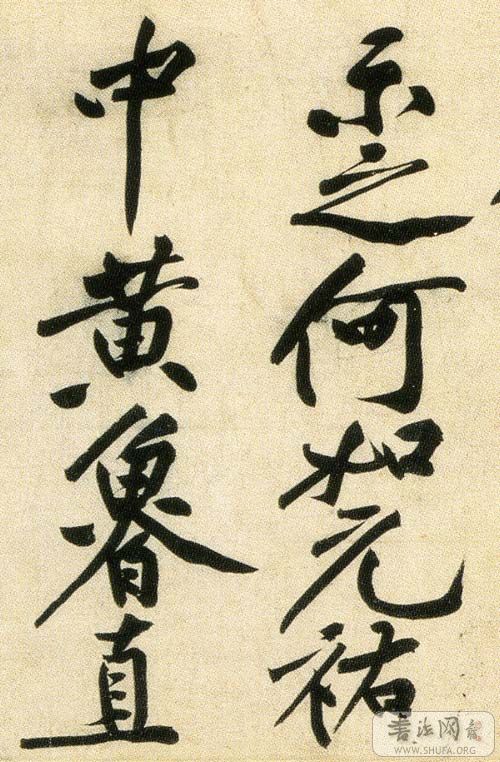 示之何如元祐
中黄魯直
书法网
WWW.SHUFA.ORG